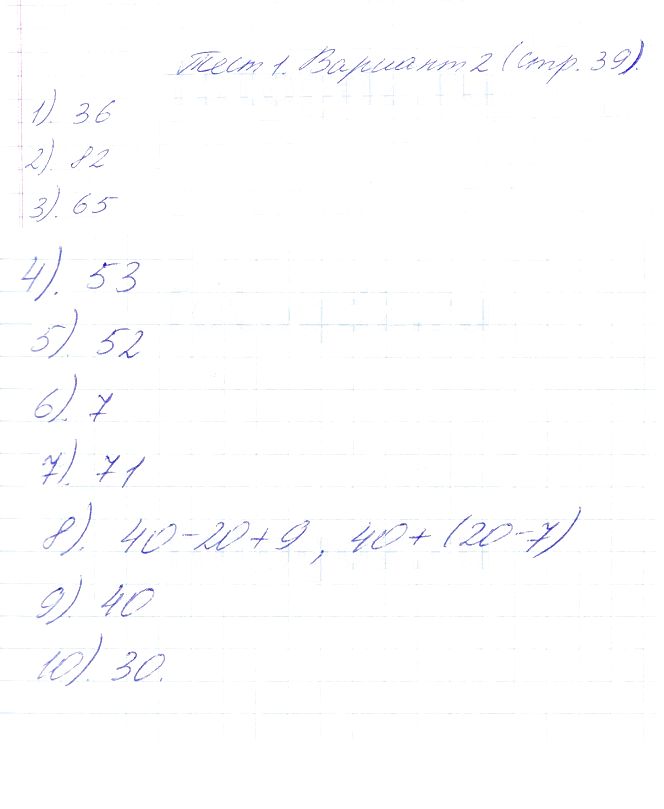 Тест 1. Вариант 2 (стр. 39).
1). 36
2). 82
3). 65
4). 53
5). 52
6). 7
7). 71
8). 40-20+9, 40+(20-7)
9). 40
10). 30.